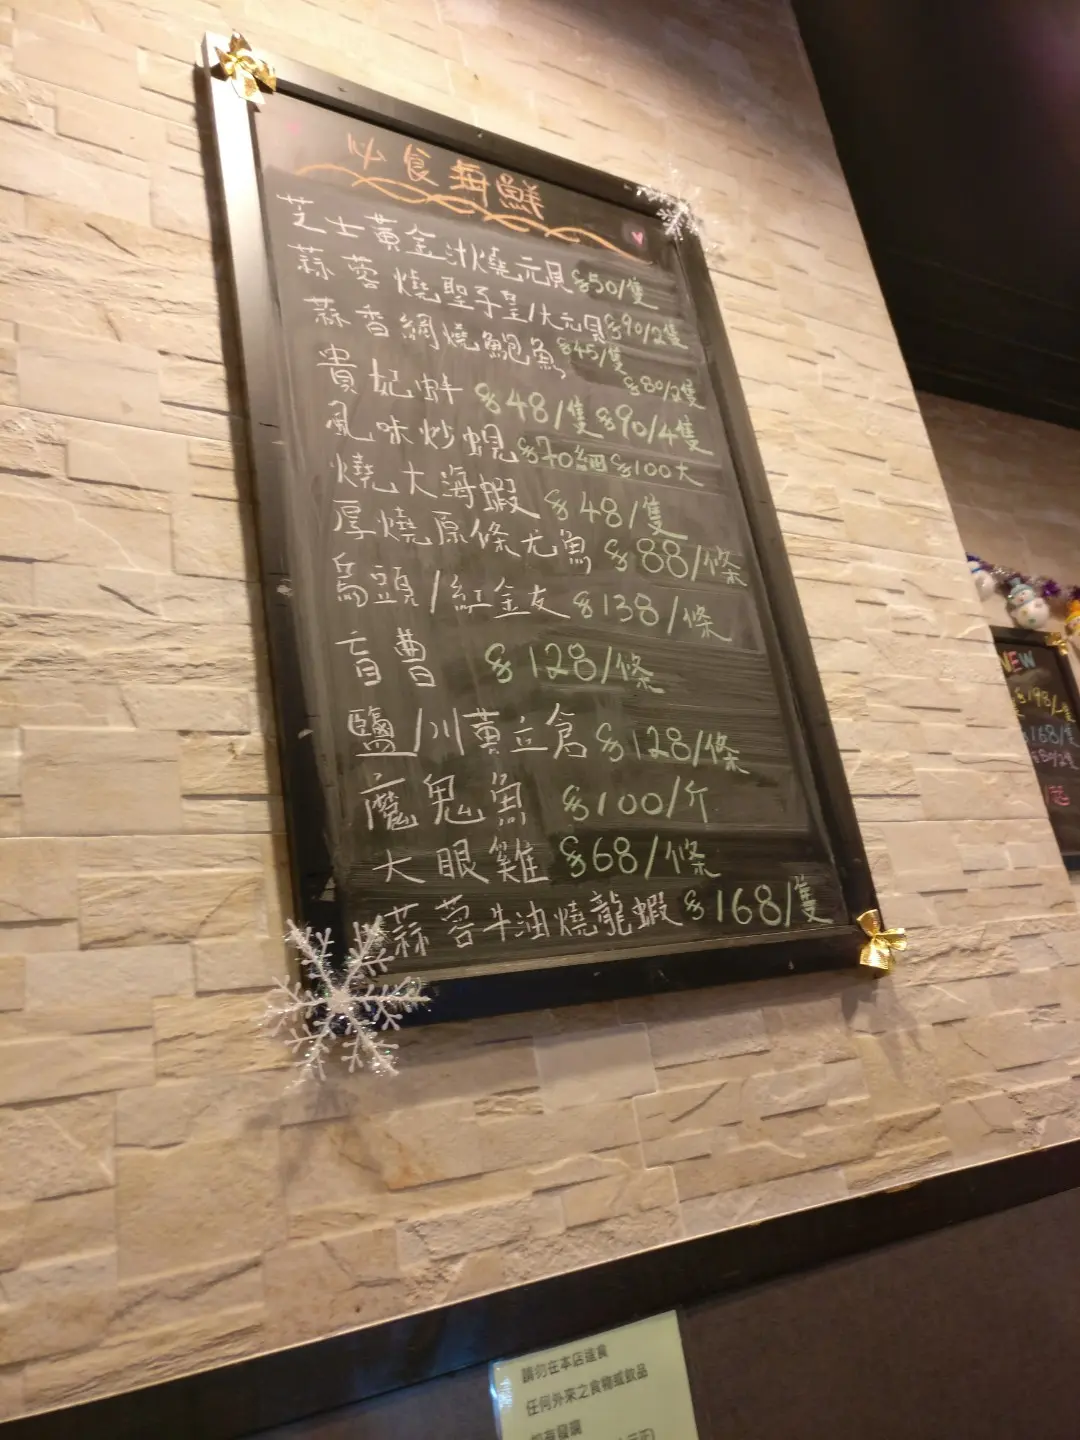 必食海鮮
芝士黃金汁燒元貝 $50/隻
蒜蓉燒聖子皇/大元貝 $90/2隻
蒜香網燒鮑魚 $45/隻
$80/2隻
貴妃蚌 $48/隻 $90/4隻
風味炒蜆 $70細 $100大
燒大海蝦 $48/隻
厚燒原條尤魚 $88/條
烏頭/紅金友 $138/條
盲曹 $128/條
鹽/川黃立倉 $128/條
魔鬼魚 $100/斤
大眼雞 $68/條
蒜蓉牛油燒龍蝦 $168/隻
NEW
$198/隻
168/隻
請勿在本店進食
任何外來之食物或飲品
如有發現